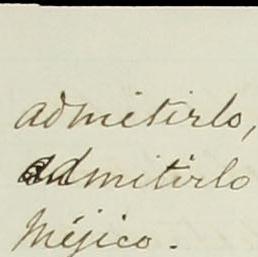 admitirlo,
admitirlo
Méjico.